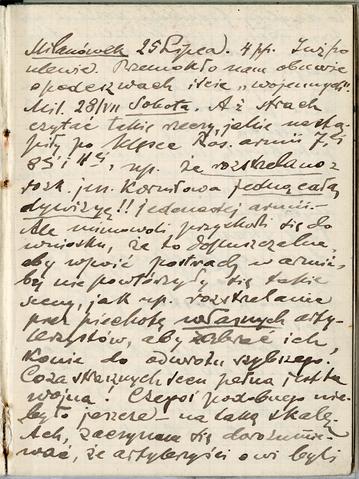 Milanówek 25 Lipca. 4 pp.
ulewa. Przemokło nam obuwie
o podeszwach iście „wojennych".
Mil. 28/VII Sobota. Aż strach
czytać takie rzeczy, jakie nastą-
piły po klęsce Ros. armii 7, i
8ej i 11ej, np. że rozstrzelano z
rozk. jen. Korniłowa jedną całą
dywizyę!! jedenastej armii—
Ale mimowoli przychodzi się do
wniosku, że to dopuszczalne,
aby wpoić postrach w armię,
by nie powtórzyły się takie
sceny, jak np. rozstrzelanie
przez piechotę własnych arty-
lerzystów, aby zabrać ich
konie do odwrotu szybszego!
Cóż za strasznych scen pełną jest ta
wojna! Czegoś podobnego nie-
było jeszcze — na taką skalę.
Ach, zaczynam się dorozumie-
wać, że artyleryści owi byli